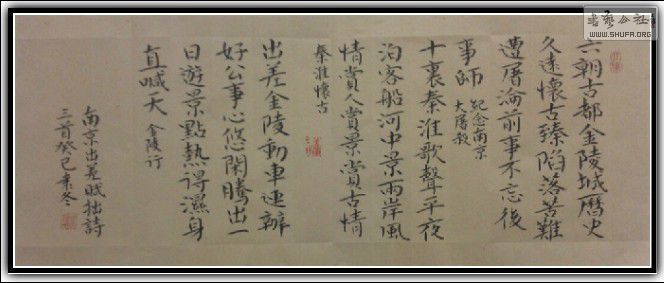 六朝古都金陵城曆史
久遠懷古臻陷落苦難
遭屠淪前事不忘後
事師 紀念南京
大屠殺
十裏秦淮歌聲平夜
泊客船河中景兩岸風
情賞人賞景賞古情
秦淮懷古
出差金陵動車速辦
好公事心悠閑騰出一
日遊景點熱得濕身
直喊大 金陵行
南京出差賦拙詩
三首癸巳末冬
書藝公社
WWW.SHUFA.ORG